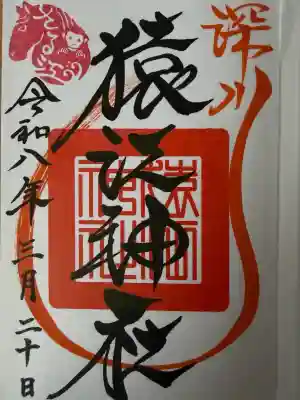 深川
猿江神社
猿江神社
令和八年三月二十日